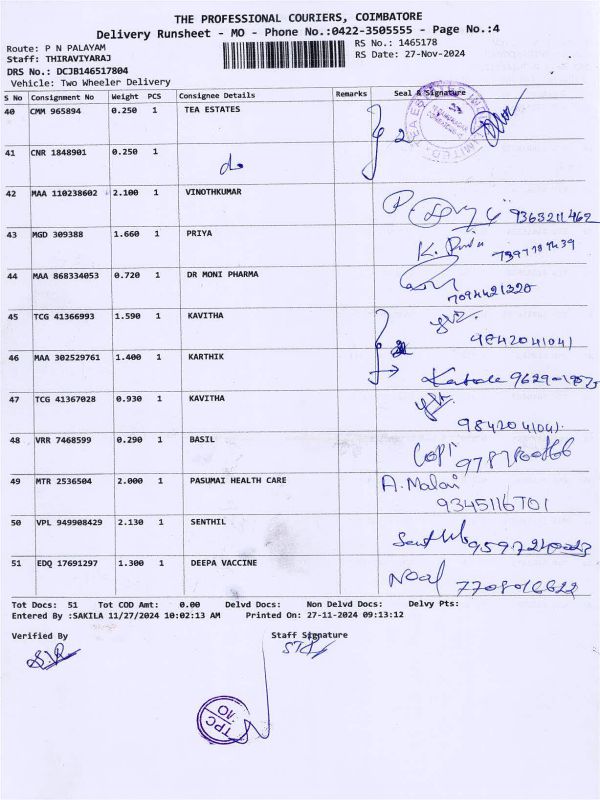 THE PROFESSIONAL COURIERS, COIMBATORE
Delivery Runsheet - MO - Phone No.:0422-3505555 - Page No.:4
Route: P N PALAYAM
RS No.: 1465178
Staff: THIRAVIYARAJ
RS Date: 27-Nov-2024
DRS No.: DCJB146517804
Vehicle: Two Wheeler Delivery
S No Consignment No Weight PCS Consignee Details Remarks Seal & Signature
40 CMM 965894 0.250 1 TEA ESTATES 2
41 CNR 1848901 0.250 1 do
42 MAA 110238602 2.100 1 VINOTHKUMAR 9363211462
43 MGD 309388 1.660 1 PRIYA K.
44 MAA 868334053 0.720 1 DR MONI PHARMA 7094421320
45 TCG 41366993 1.590 1 KAVITHA 9842041041
46 MAA 302529761 1.400 1 KARTHIK
47 TCG 41367028 0.930 1 KAVITHA 9842041041.
48 VRR 7468599 0.290 1 BASIL Gopi
49 MTR 2536504 2.000 1 PASUMAI HEALTH CARE A. Malai
9345116701
50 VPL 949908429 2.130 1 SENTHIL Senthil
51 EDQ 17691297 1.300 1 DEEPA VACCINE Noal 7708016622
Tot Docs: 51 Tot COD Amt: 0.00 Delvd Docs: Non Delvd Docs: Delvy Pts:
Entered By :SAKILA 11/27/2024 10:02:13 AM Printed On: 27-11-2024 09:13:12
Verified By Staff Signature
TPC
MO